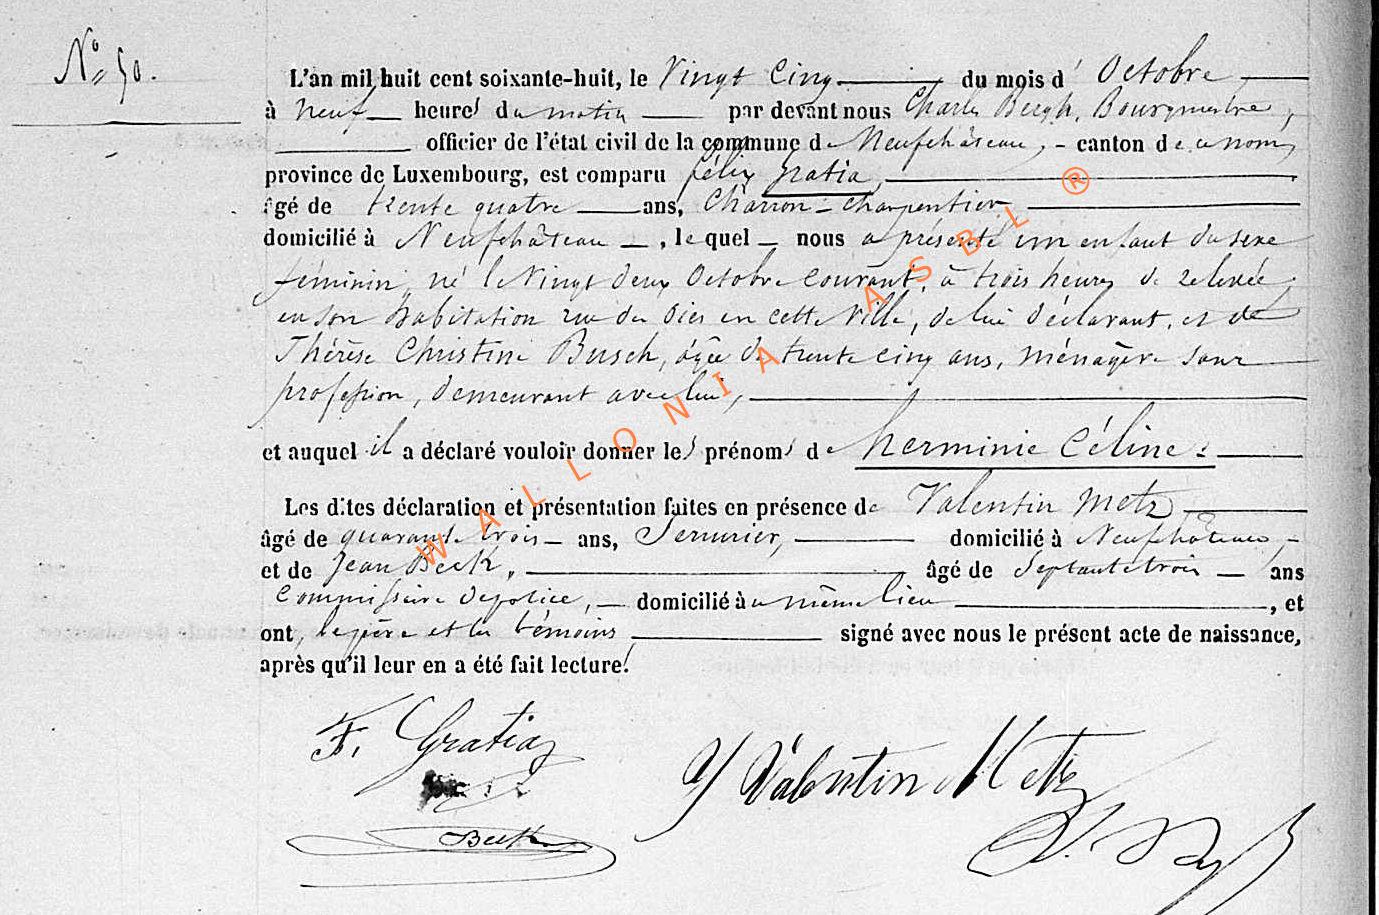 N° 50.
L'an mil huit cent soixante-huit, le Vingt Cinq du mois d' Octobre
à neuf heures du matin par devant nous Charles Bergh, Bourgmestre,
officier de l'état civil de la commune de Neufchâteau, canton de ce nom,
province de Luxembourg, est comparu félix Gratia,
âgé de trente quatre ans, Charron - charpentier
domicilié à Neufchâteau, lequel nous a présenté un enfant du sexe
féminin, né le Vingt deux Octobre courant, à trois heures de relevée,
en son habitation rue du en cette Ville, de lui déclarant, et de
Thérèse Christine Busch, âgée de trente cinq ans, ménagère sans
profession, demeurant avec lui,
et auquel il a déclaré vouloir donner les prénoms de herminie Céline
Les dites déclaration et présentation faites en présence de Valentin Metz
âgé de quarante trois ans, Serrurier, domicilié à Neufchâteau,
et de Jean Beck, âgé de Septante trois ans
Commissaire de police, domicilié à même lieu, et
ont, le père et les témoins signé avec nous le présent acte de naissance,
après qu'il leur en a été fait lecture.
F. Gratia
Valentin Metz
Beck
WALLONIA ASBL ®